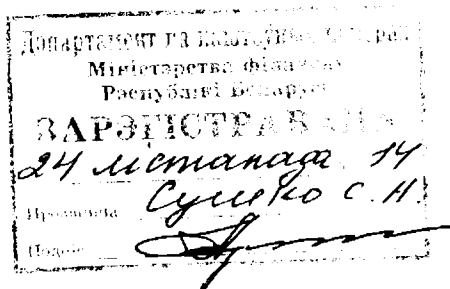 Дэпартамент па каштоўных паперах
Міністэрства фінансаў
Рэспублікі Беларусь
ЗАРЭГІСТРАВАНА
24 лістапада 14
Прозвішча Сушко С.Н.
Подпіс